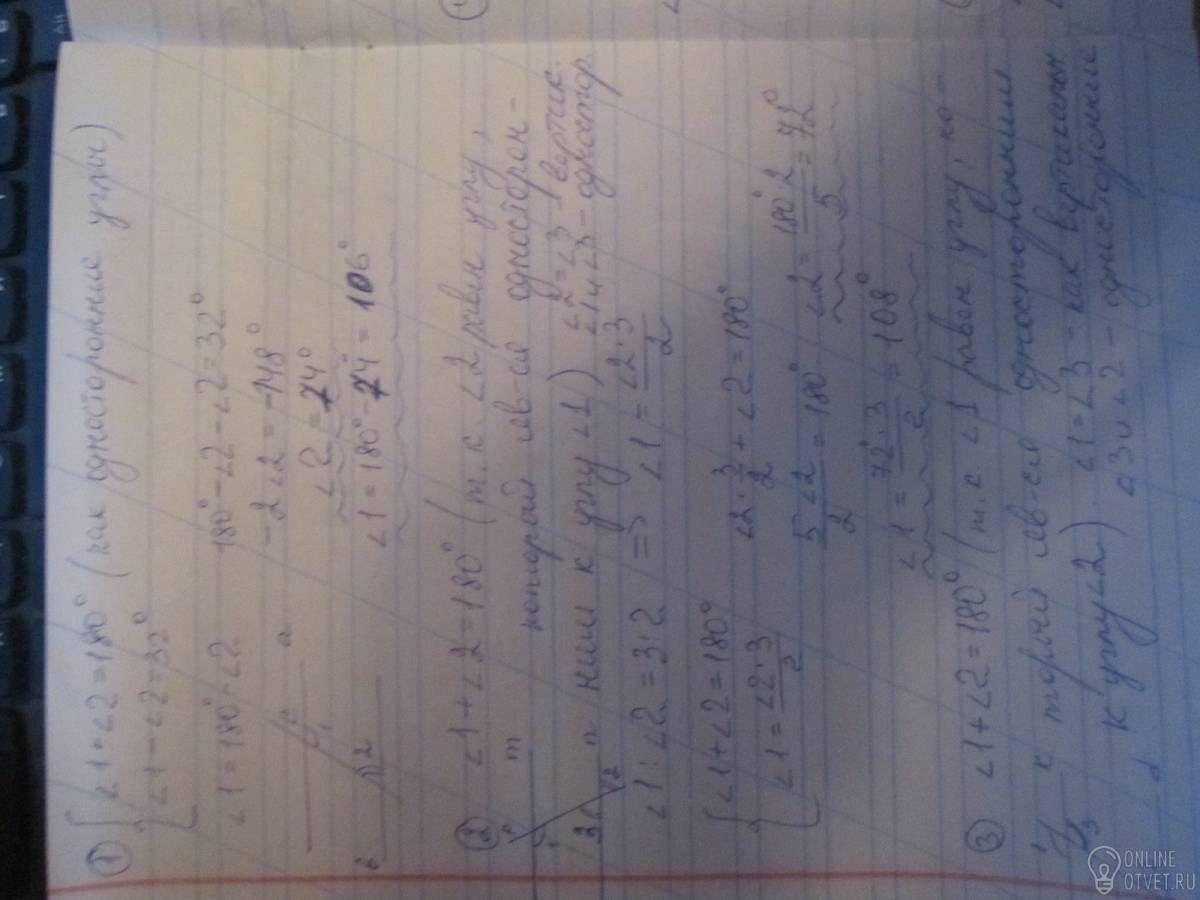 ① ∠1+∠2=180° (как односторонние углы)
∠1-∠2=32°
∠1=180°-∠2
180°-∠2-∠2=32°
-2∠2=-148°
∠2=74°
∠1=180°-74°=106°
a
c
1
в
2
② ∠1+∠2=180° (т.к ∠2 равен углу,
который яв-ся односторон-
ним к углу ∠1)
∠2=∠3 - вертик.
∠1 и ∠3 - одностор.
m
p
1
n
3
2
∠1:∠2=3:2 => ∠1=∠2·3/2
∠1+∠2=180°
∠1=∠2·3/2
∠2·3/2+∠2=180°
5∠2/2=180° ∠2=180°·2/5=72°
∠1=72°·3/2=108°
③ ∠1+∠2=180° (т.к ∠1 равен углу, ко-
торый яв-ся односторонним
к углу ∠2)
∠1=∠3 - как вертикальн
∠3 и ∠2 - односторонние
1
к
3
d
ONLINE
OTVET.RU